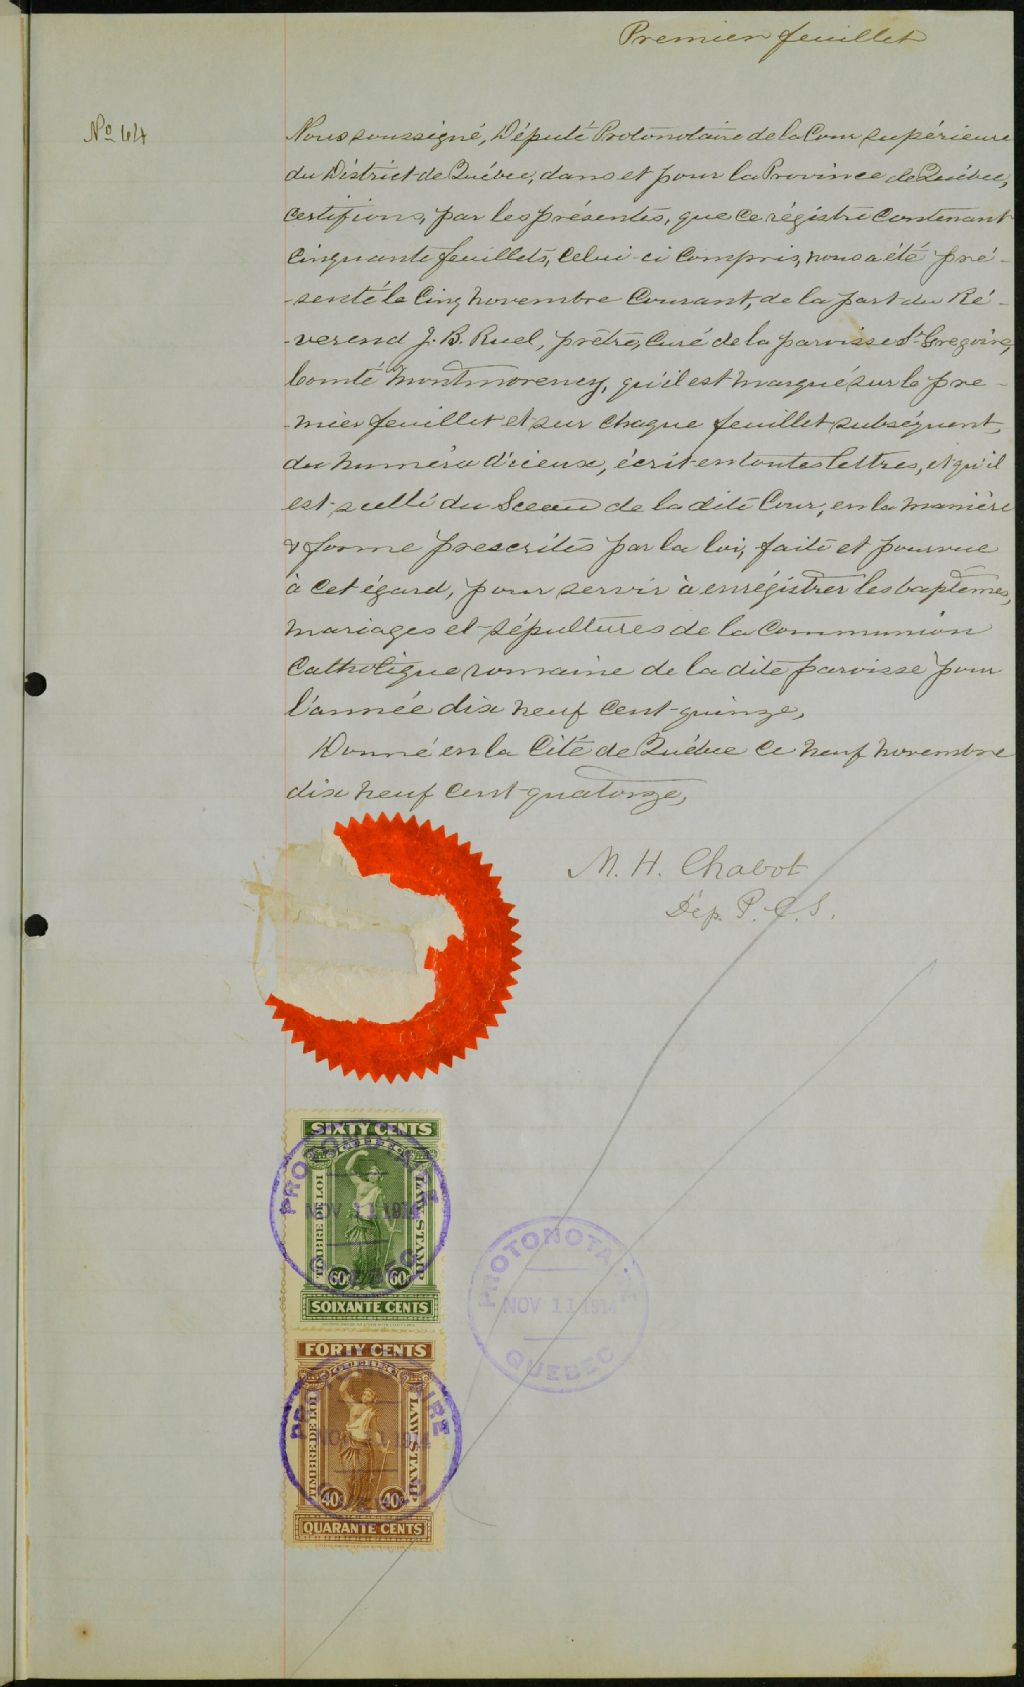 Premier feuillet
No 44
Nous soussigné, Député Protonotaire de la Cour supérieure
du District de Québec, dans et pour la Province de Québec,
certifions, par les présentes, que ce régistre contenant
cinquante feuillets, celui-ci compris, nous a été pré-
-senté le cinq novembre courant, de la part du Ré-
-verend J. B. Ruel, prêtre, curé de la paroisse St Gregoire,
Comté Montmorency, qu'il est marqué sur le pre-
-mier feuillet et sur chaque feuillet subséquent,
du numéro d'iceux, écrit en toutes lettres, et qu'il
est scellé du Sceau de la dite Cour, en la manière
& forme prescrites par la loi, faite et pourvue
à cet égard, pour servir à enrégistrer les baptêmes,
mariages et sépultures de la Communion
Catholique romaine de la dite paroisse pour
l'année dix neuf cent quinze,
Donné en la Cité de Québec ce neuf novembre
dix neuf cent quatorze,
M. H. Chabot
Dép. P. C. S.
SIXTY CENTS
PROTONOTAIRE
TIMBRE DE LOI
LAW STAMP
NOV 11 1914
QUEBEC
60c 60c
SOIXANTE CENTS
PROTONOTAIRE
NOV 11 1914
QUEBEC
FORTY CENTS
PROTONOTAIRE
TIMBRE DE LOI
LAW STAMP
NOV 11 1914
QUEBEC
40c 40c
QUARANTE CENTS